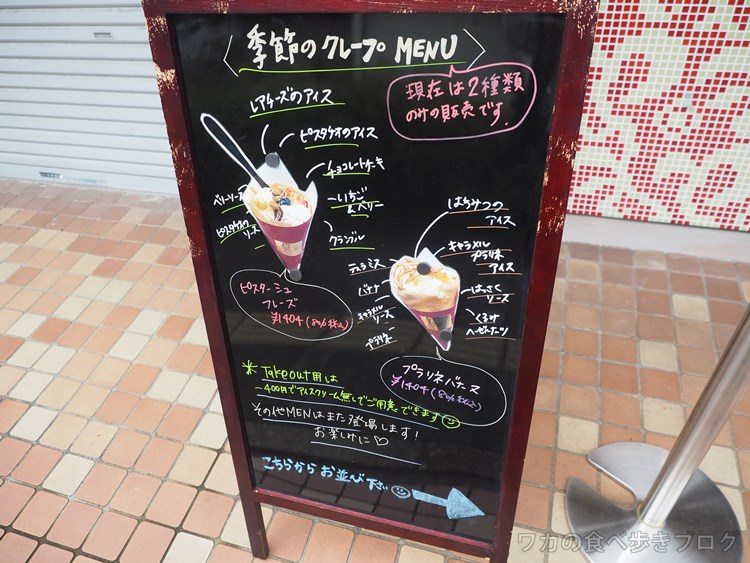 季節のクレープ MENU
現在は2種類
のみの販売です。
レアチーズのアイス
ピスタチオのアイス
チョコレートケーキ
いちご
&ベリー
クランブル
ベリーソース
ピスタチオの
ソース
ピスターシュ
フレーズ
¥1404(8%税込)
はちみつの
アイス
キャラメル
プラリネ
アイス
はっさく
ソース
くるみ
ヘーゼルナーツ
ティラミス
バナナ
キャラメル
ソース
プラリネ
プラリネバナーヌ
¥1404(8%税込)
※Takeout用は
-400円でアイスクリーム無しでご用意できます
その他MENUはまた登場します!
お楽しみに♡
こちらからお並び下さい
ワカの食べ歩きブログ